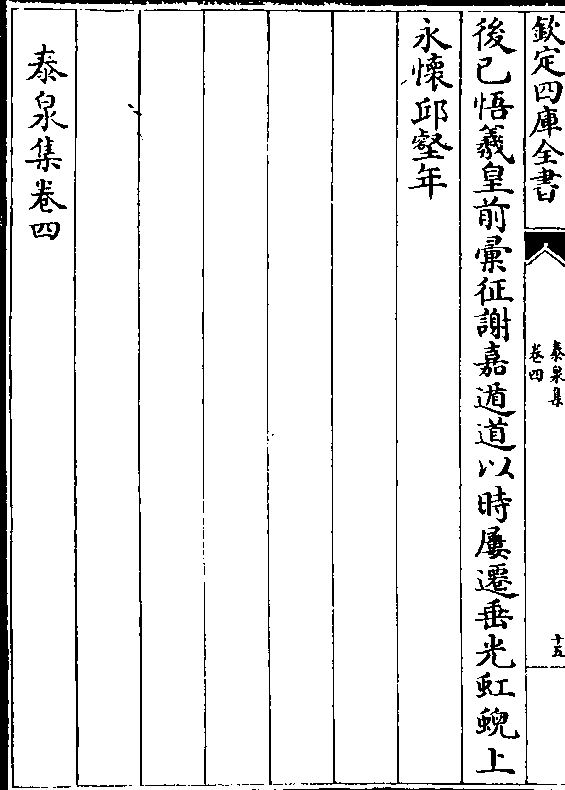 欽定四庫全書
泰泉集
卷四
十五
後已悟羲皇前彚征謝嘉遁道以時屢遷垂光虹蜺上
永懷邱壑年
泰泉集卷四